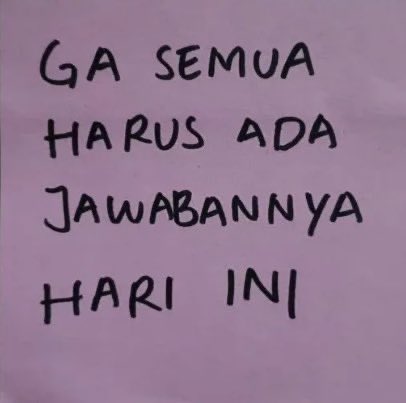 GA SEMUA
HARUS ADA
JAWABANNYA
HARI INI